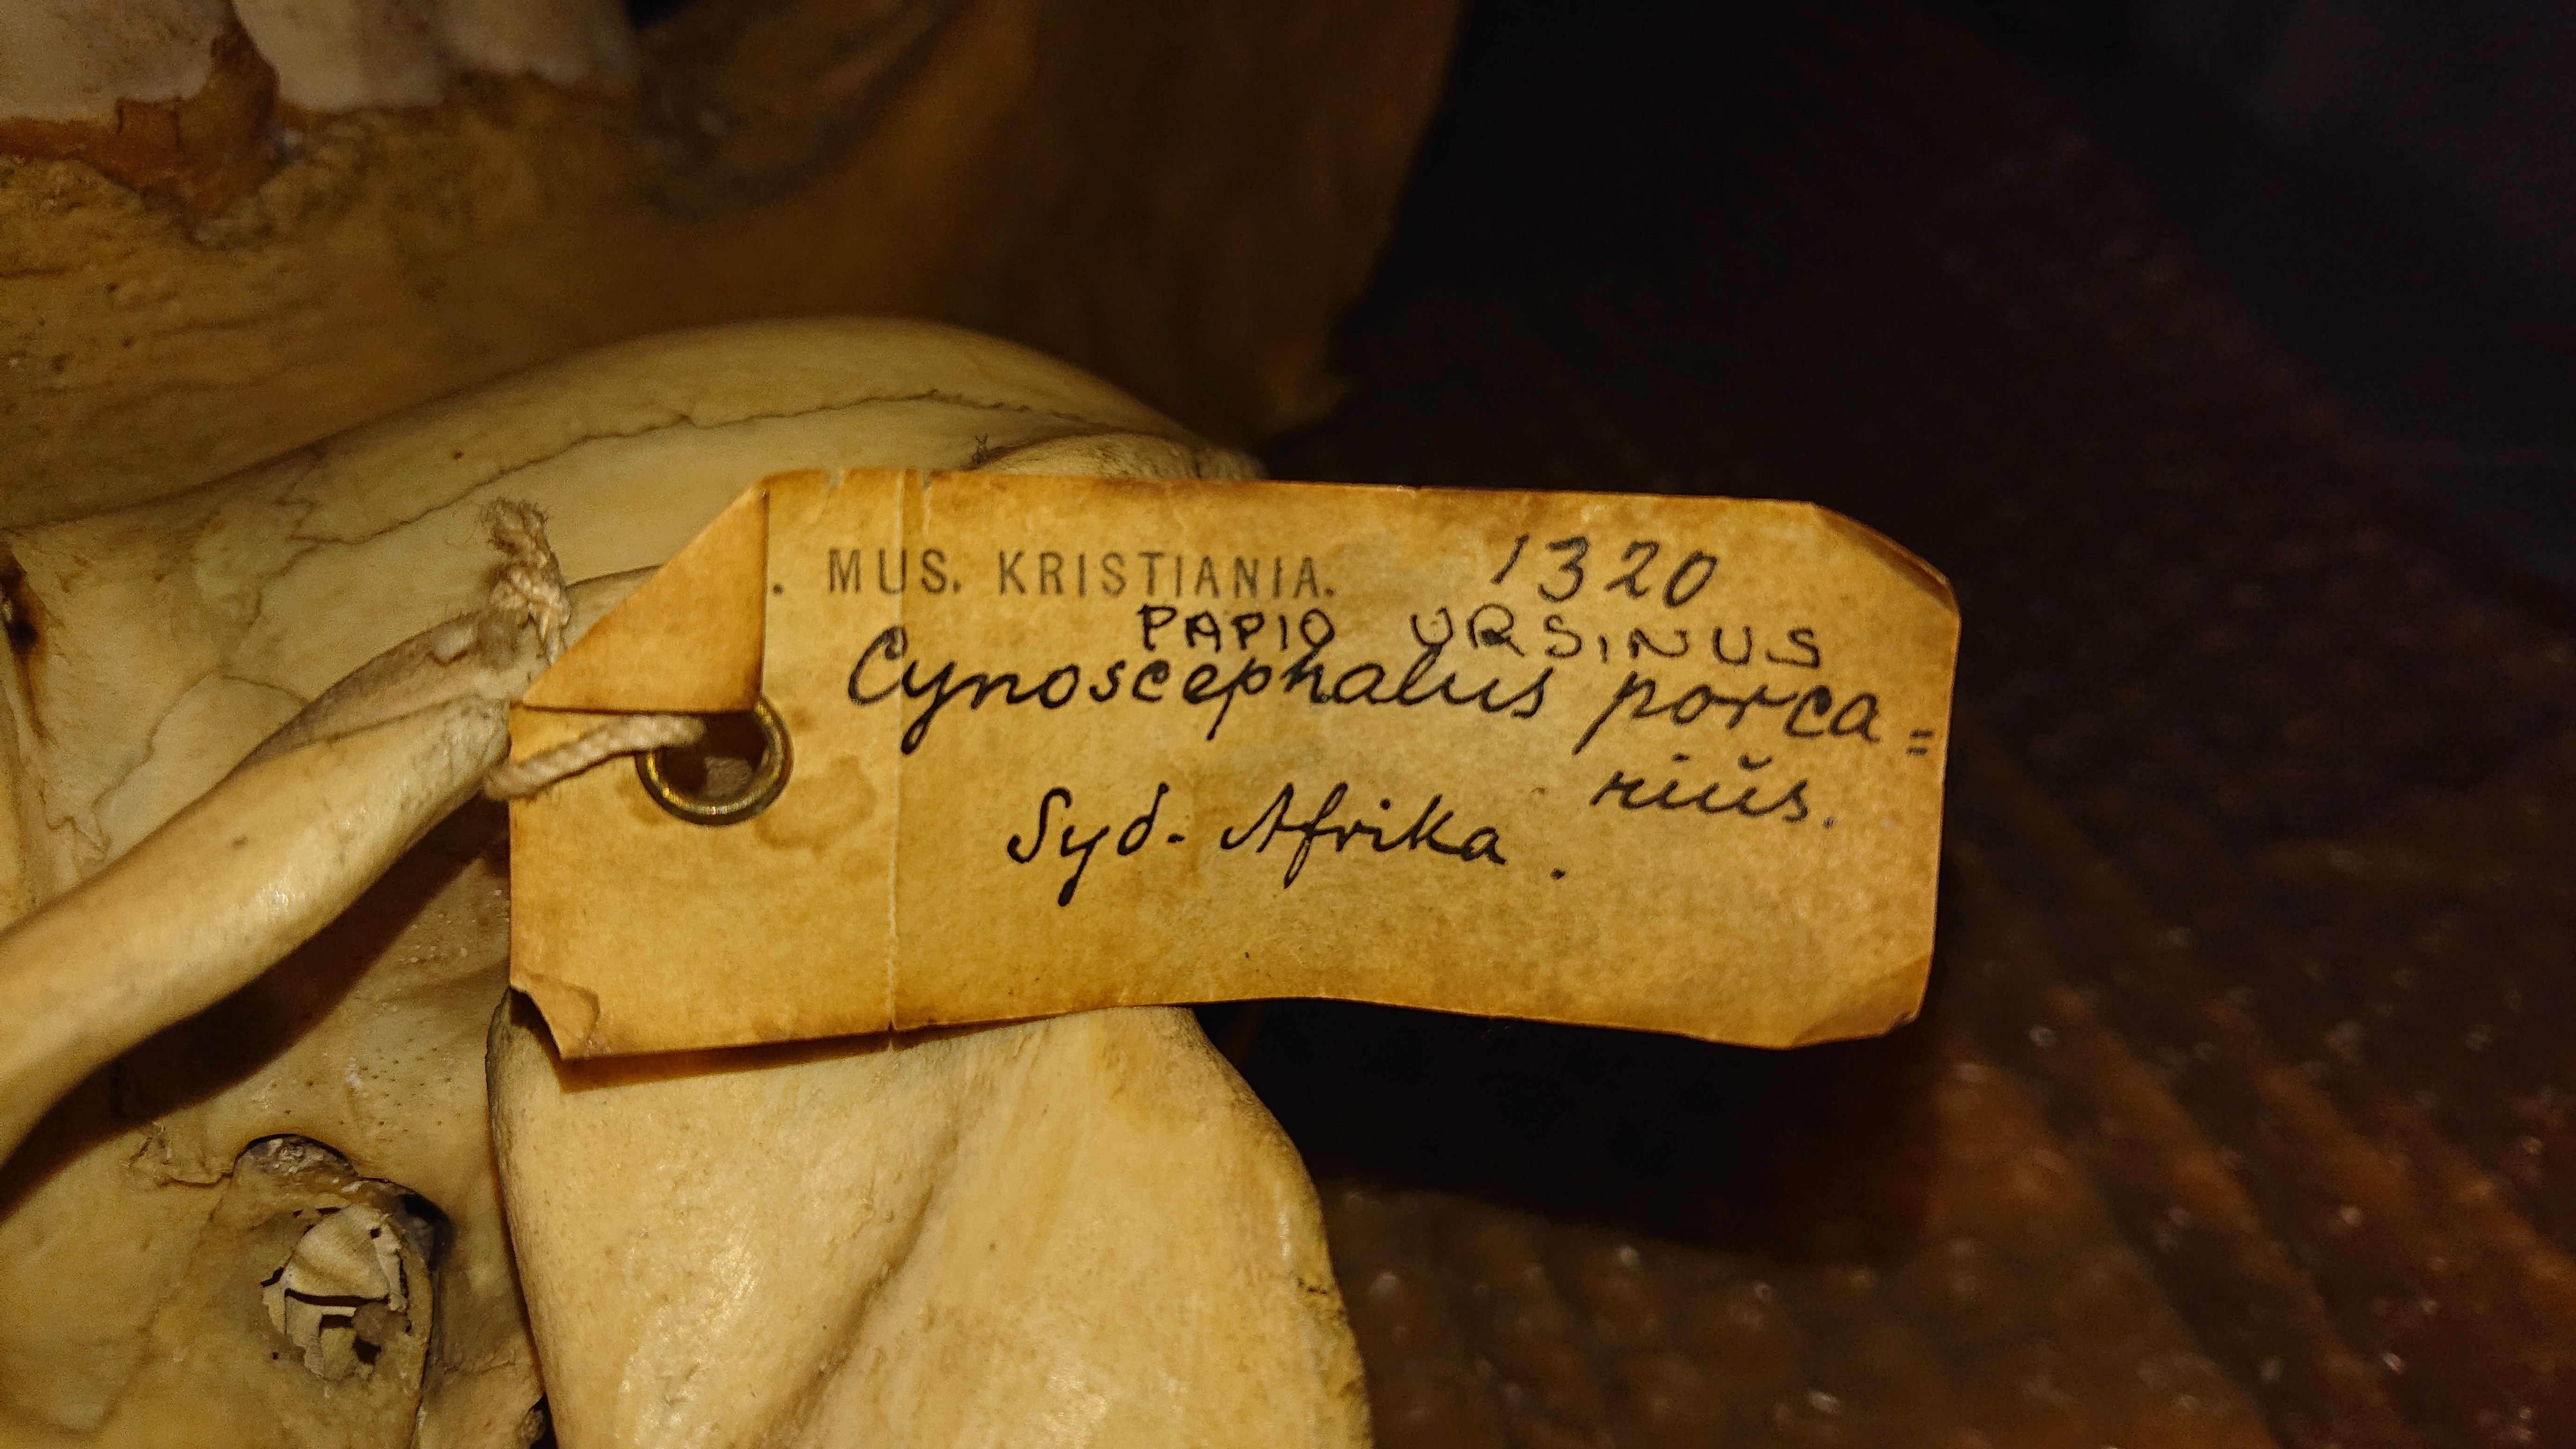 . MUS. KRISTIANIA. 1320
PAPIO URSINUS
Cynoscephalus porca=
riŭs.
Syd-Afrika.